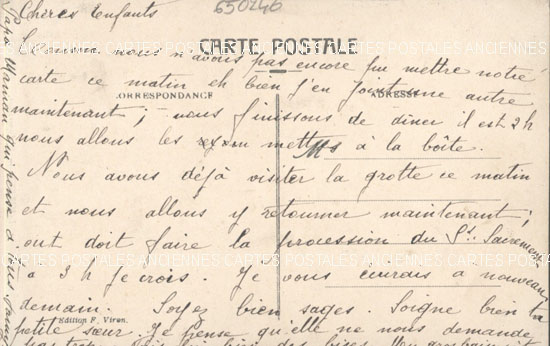 650246
Chères Enfants
Comme nous n'avons pas encore pu mettre notre
CARTE POSTALE
carte ce matin eh bien j'en joint une autre
CORRESPONDANCE
ADRESSE
maintenant; nous finissons de diner il est 2 h
nous allons les mettre à la boîte.
Nous avons déjà visiter la grotte ce matin
et nous allons y retourner maintenant;
ont doit faire la procession du St. Sacrement
a 3 h je crois. Je vous a nouveau
demain. Soyez bien sages. Soigne bien la
Edition F. Viron.
petite sœur. Je pense qu'elle ne nous demande
pas trop
Papa Maman qui pense à
ANCIENNES CARTES POSTALES ANCIENNES CARTES POSTALES